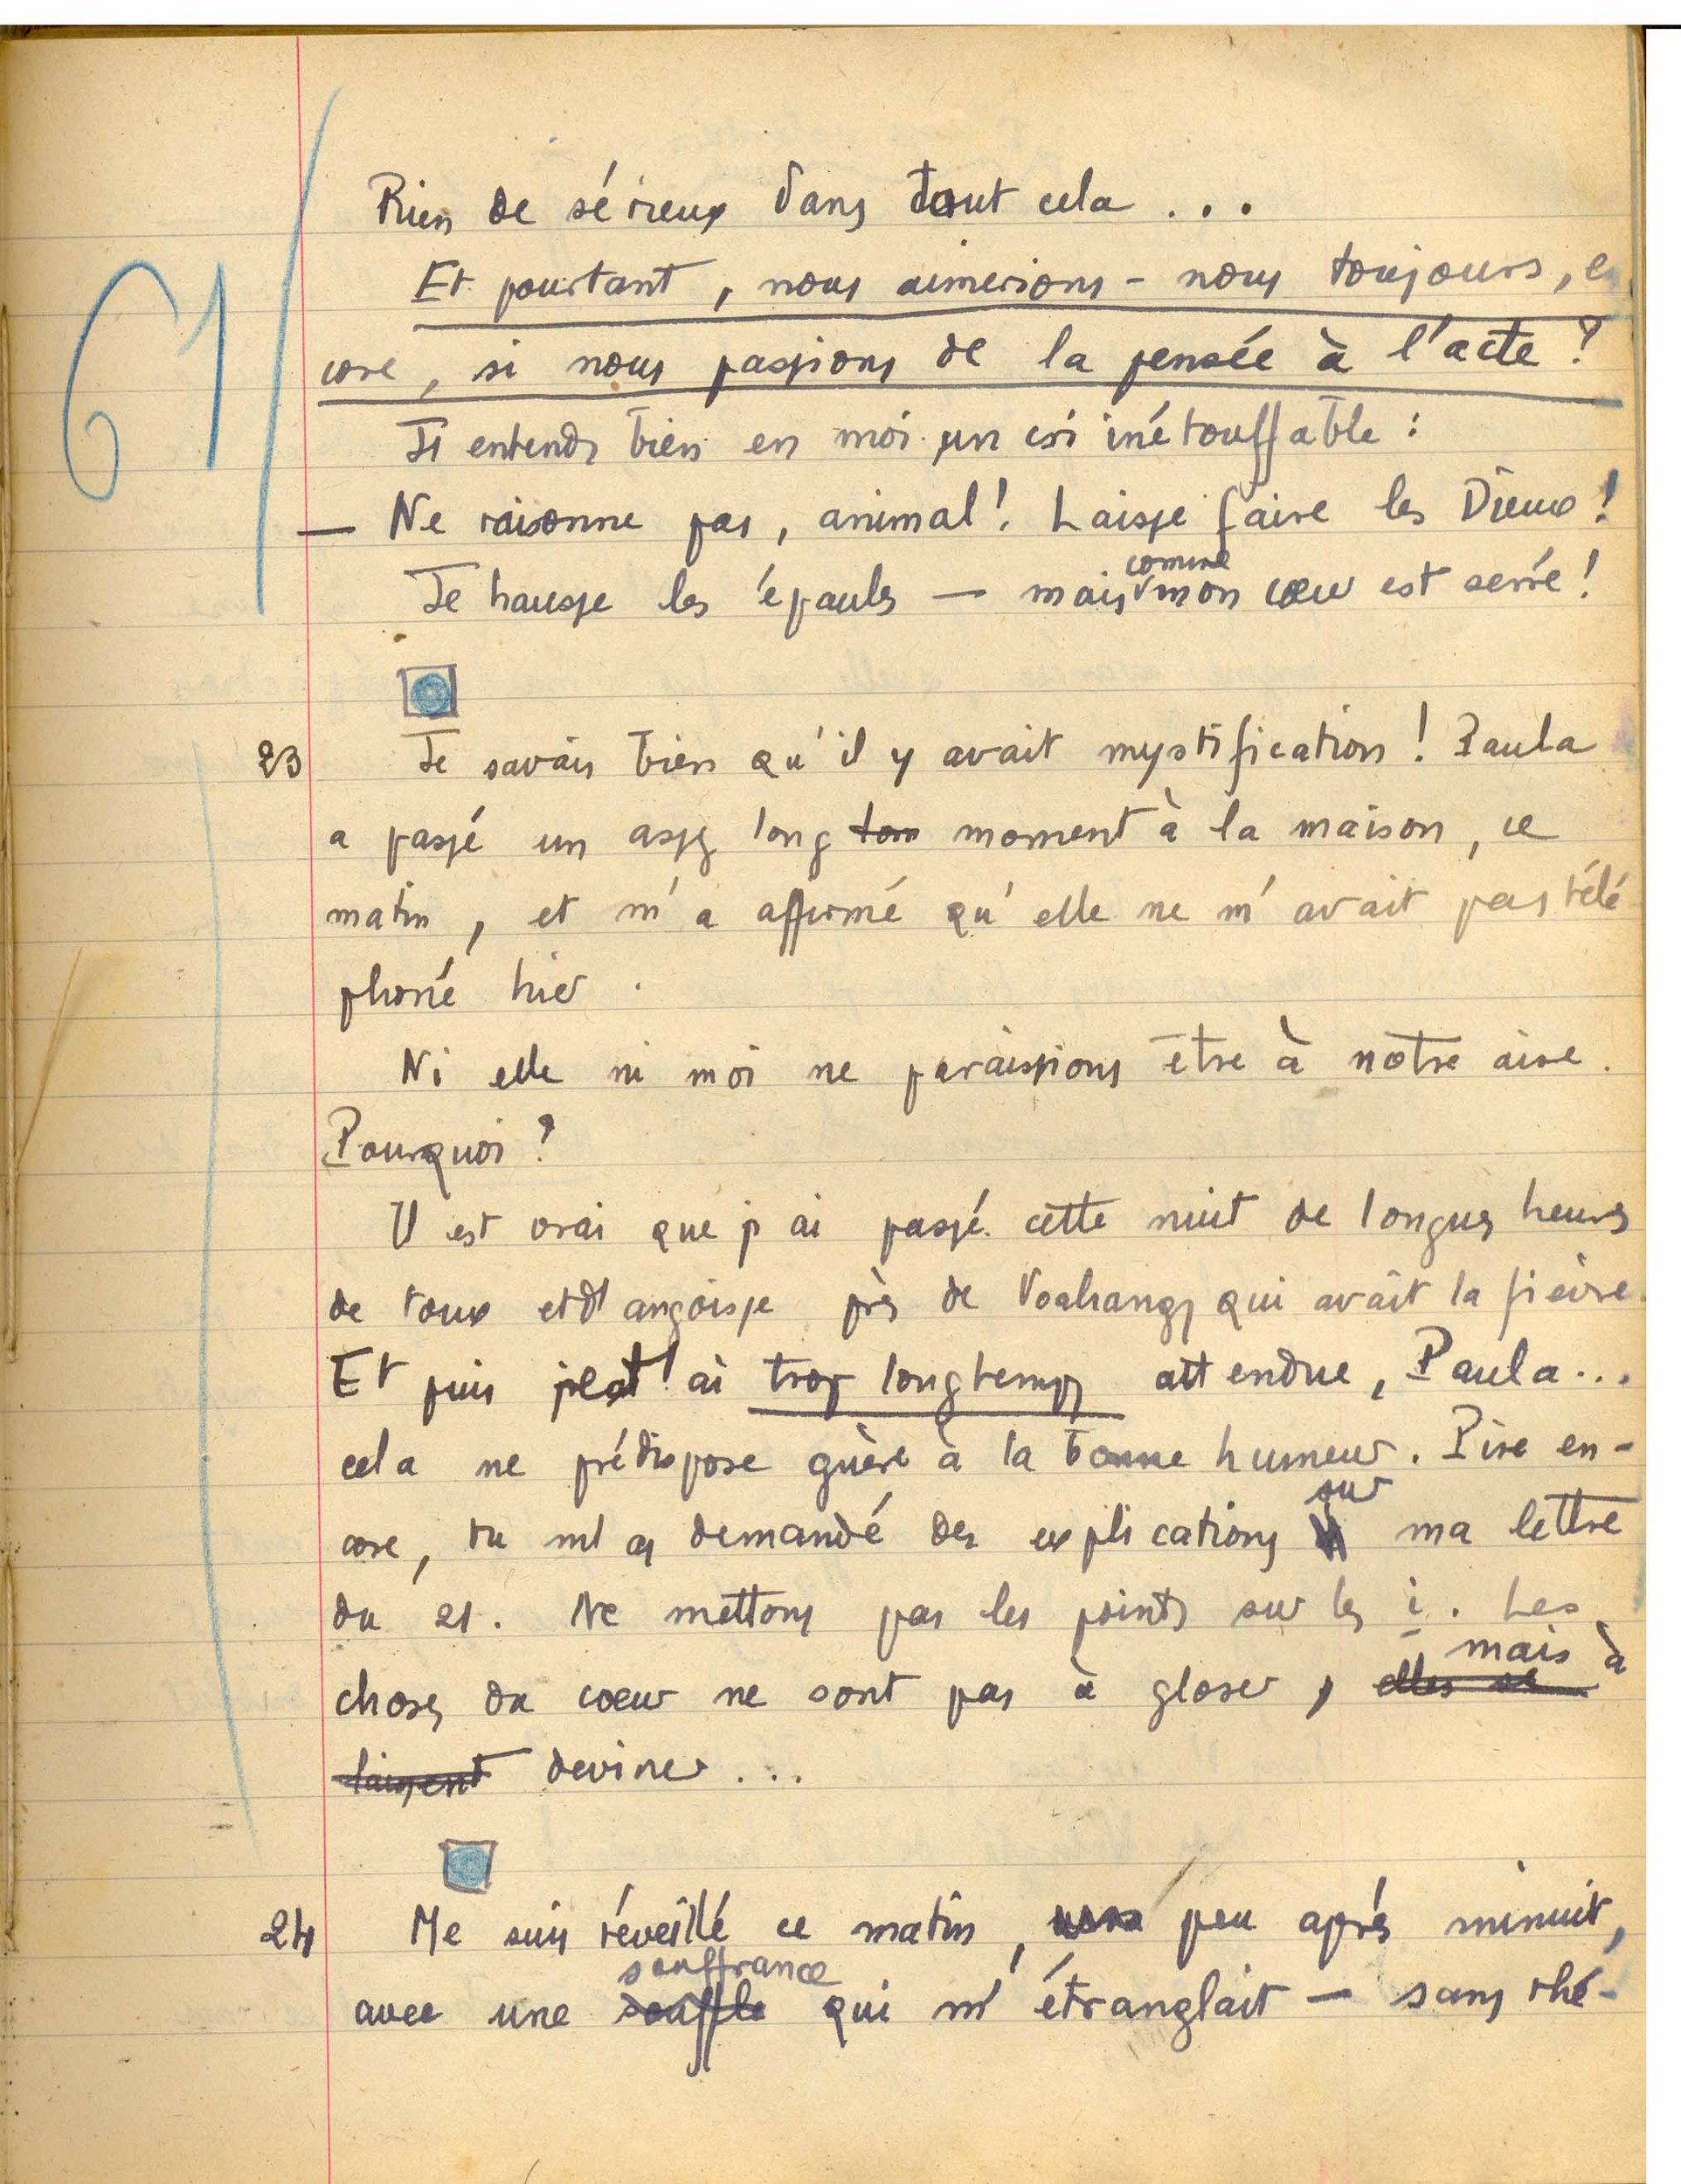 61
Rien de sérieux dans tout cela ...
Et pourtant, nous aimerions-nous toujours, en
core, si nous passions de la pensée à l'acte ?
J'entends bien en moi un cri inétouffable :
— Ne raisonne pas, animal ! Laisse faire les Dieux !
comme
Je hausse les épaules — mais mon cœur est serré !
23 Je savais bien qu'il y avait mystification ! Paula
a passé un assez long tom moment à la maison, ce
matin, et m'a affirmé qu'elle ne m'avait pas télé
phoné hier.
Ni elle ni moi ne paraissions être à notre aise.
Pourquoi ?
Il est vrai que j'ai passé cette nuit de longues heures
de toux et d'angoisse près de Voahangy qui avait la fièvre.
Et puis je t'ai trop longtemps attendue, Paula...
cela ne prédispose guère à la bonne humeur. Pire en-
sur
core, tu m'as demandé des explications ma lettre
du 21. Ne mettons pas les points sur les i. Les
mais à
choses du cœur ne sont pas à gloser, elles se
laissent deviner ...
24 Me suis réveillé ce matin, peu après minuit,
souffrance
avec une souffle qui m'étranglait — sans rhé-